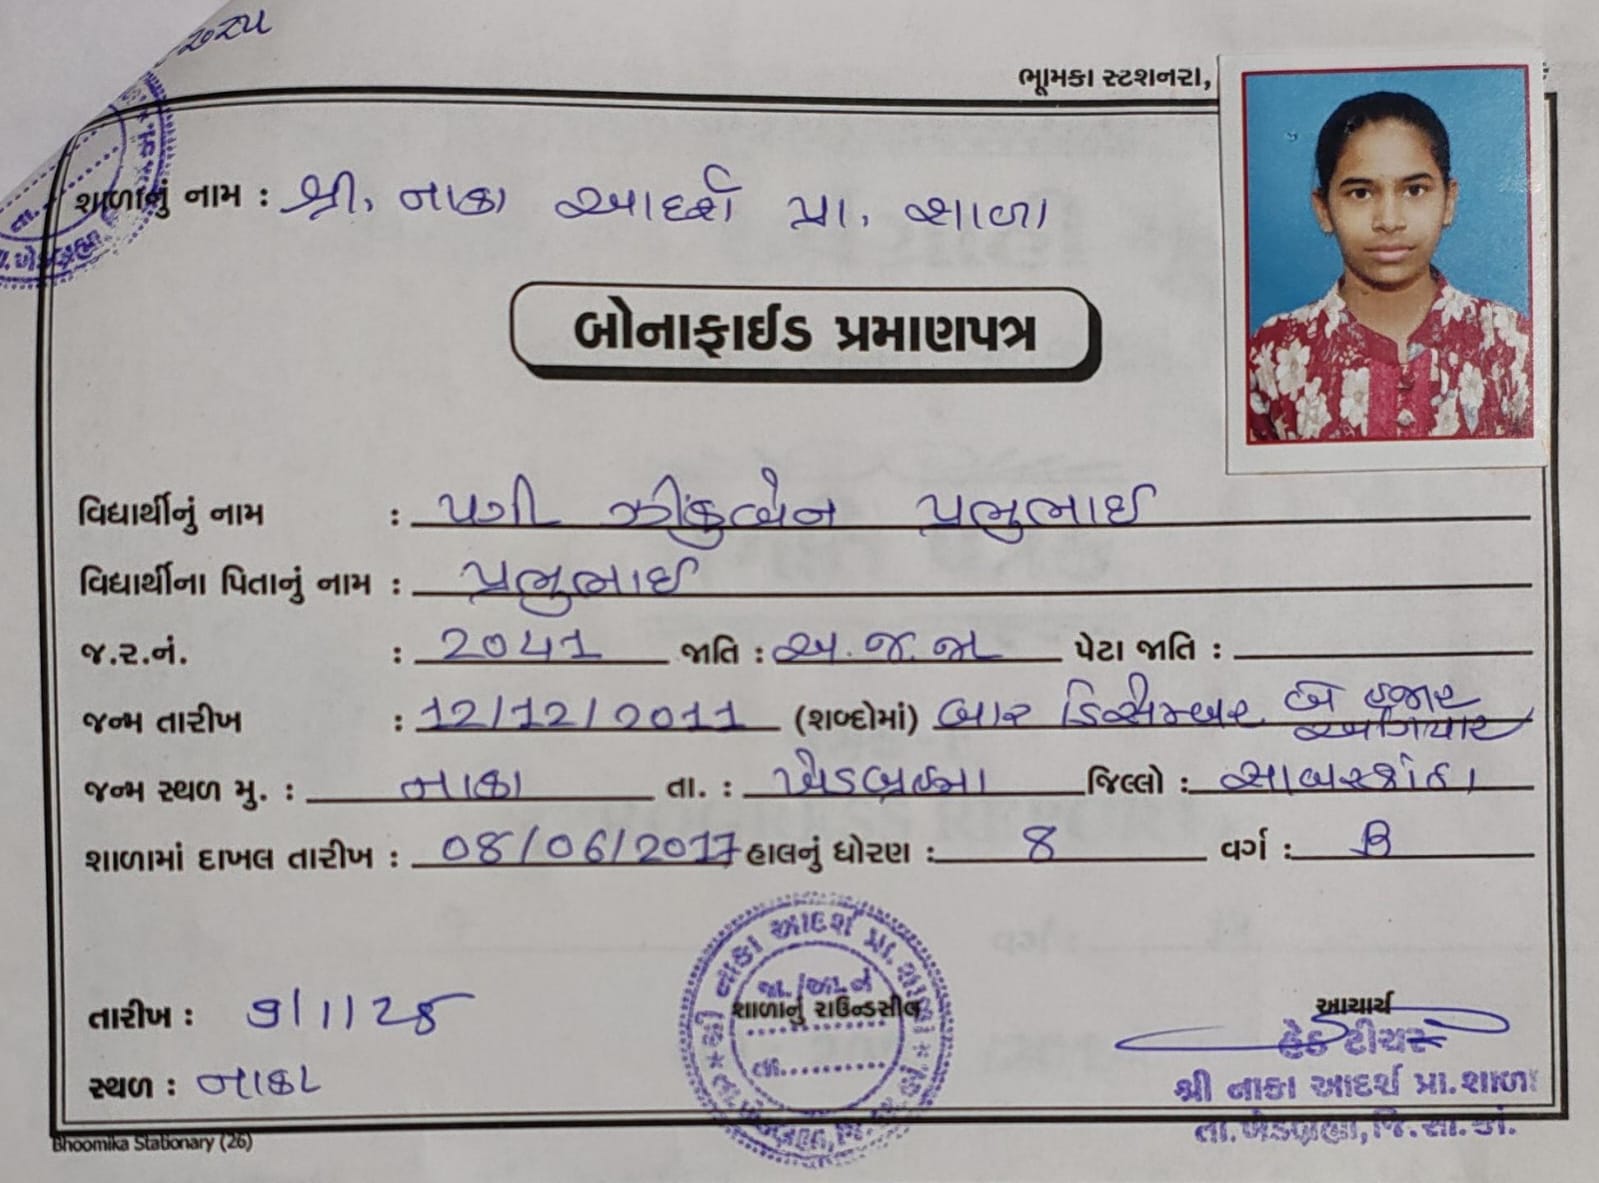 ૨૦૨૫
ભૂમિકા સ્ટેશનરી,
શાળાનું નામ : શ્રી, નાકા આદર્શ પ્રા. શાળા
બોનાફાઈડ પ્રમાણપત્ર
વિદ્યાર્થીનું નામ : પગી ઝીંકુબેન પ્રભુભાઈ
વિદ્યાર્થીના પિતાનું નામ : પ્રભુભાઈ
જ.ર.નં. : 2041 જાતિ : અ.જ.જા પેટા જાતિ :
જન્મ તારીખ : 12/12/2011 (શબ્દોમાં) બાર ડિસેમ્બર બે હજાર
અગિયાર
જન્મ સ્થળ મુ. : નાકા તા. : ખેડબ્રહ્મા જિલ્લો : સાબરકાંઠા
શાળામાં દાખલ તારીખ : 08/06/2017 હાલનું ધોરણ : 8 વર્ગ : B
શ્રી નાકા આદર્શ પ્રા. શાળા
જા./આ.ને
શાળાનું રાઉન્ડસીલ
તા.
તારીખ : 9/1/25
સ્થળ : નાકા
આચાર્ય
હેડ ટીચર
શ્રી નાકા આદર્શ પ્રા.શાળા
તા.ખેડબ્રહ્મા,જિ.સા.કાં.
Bhoomika Stationary (26)